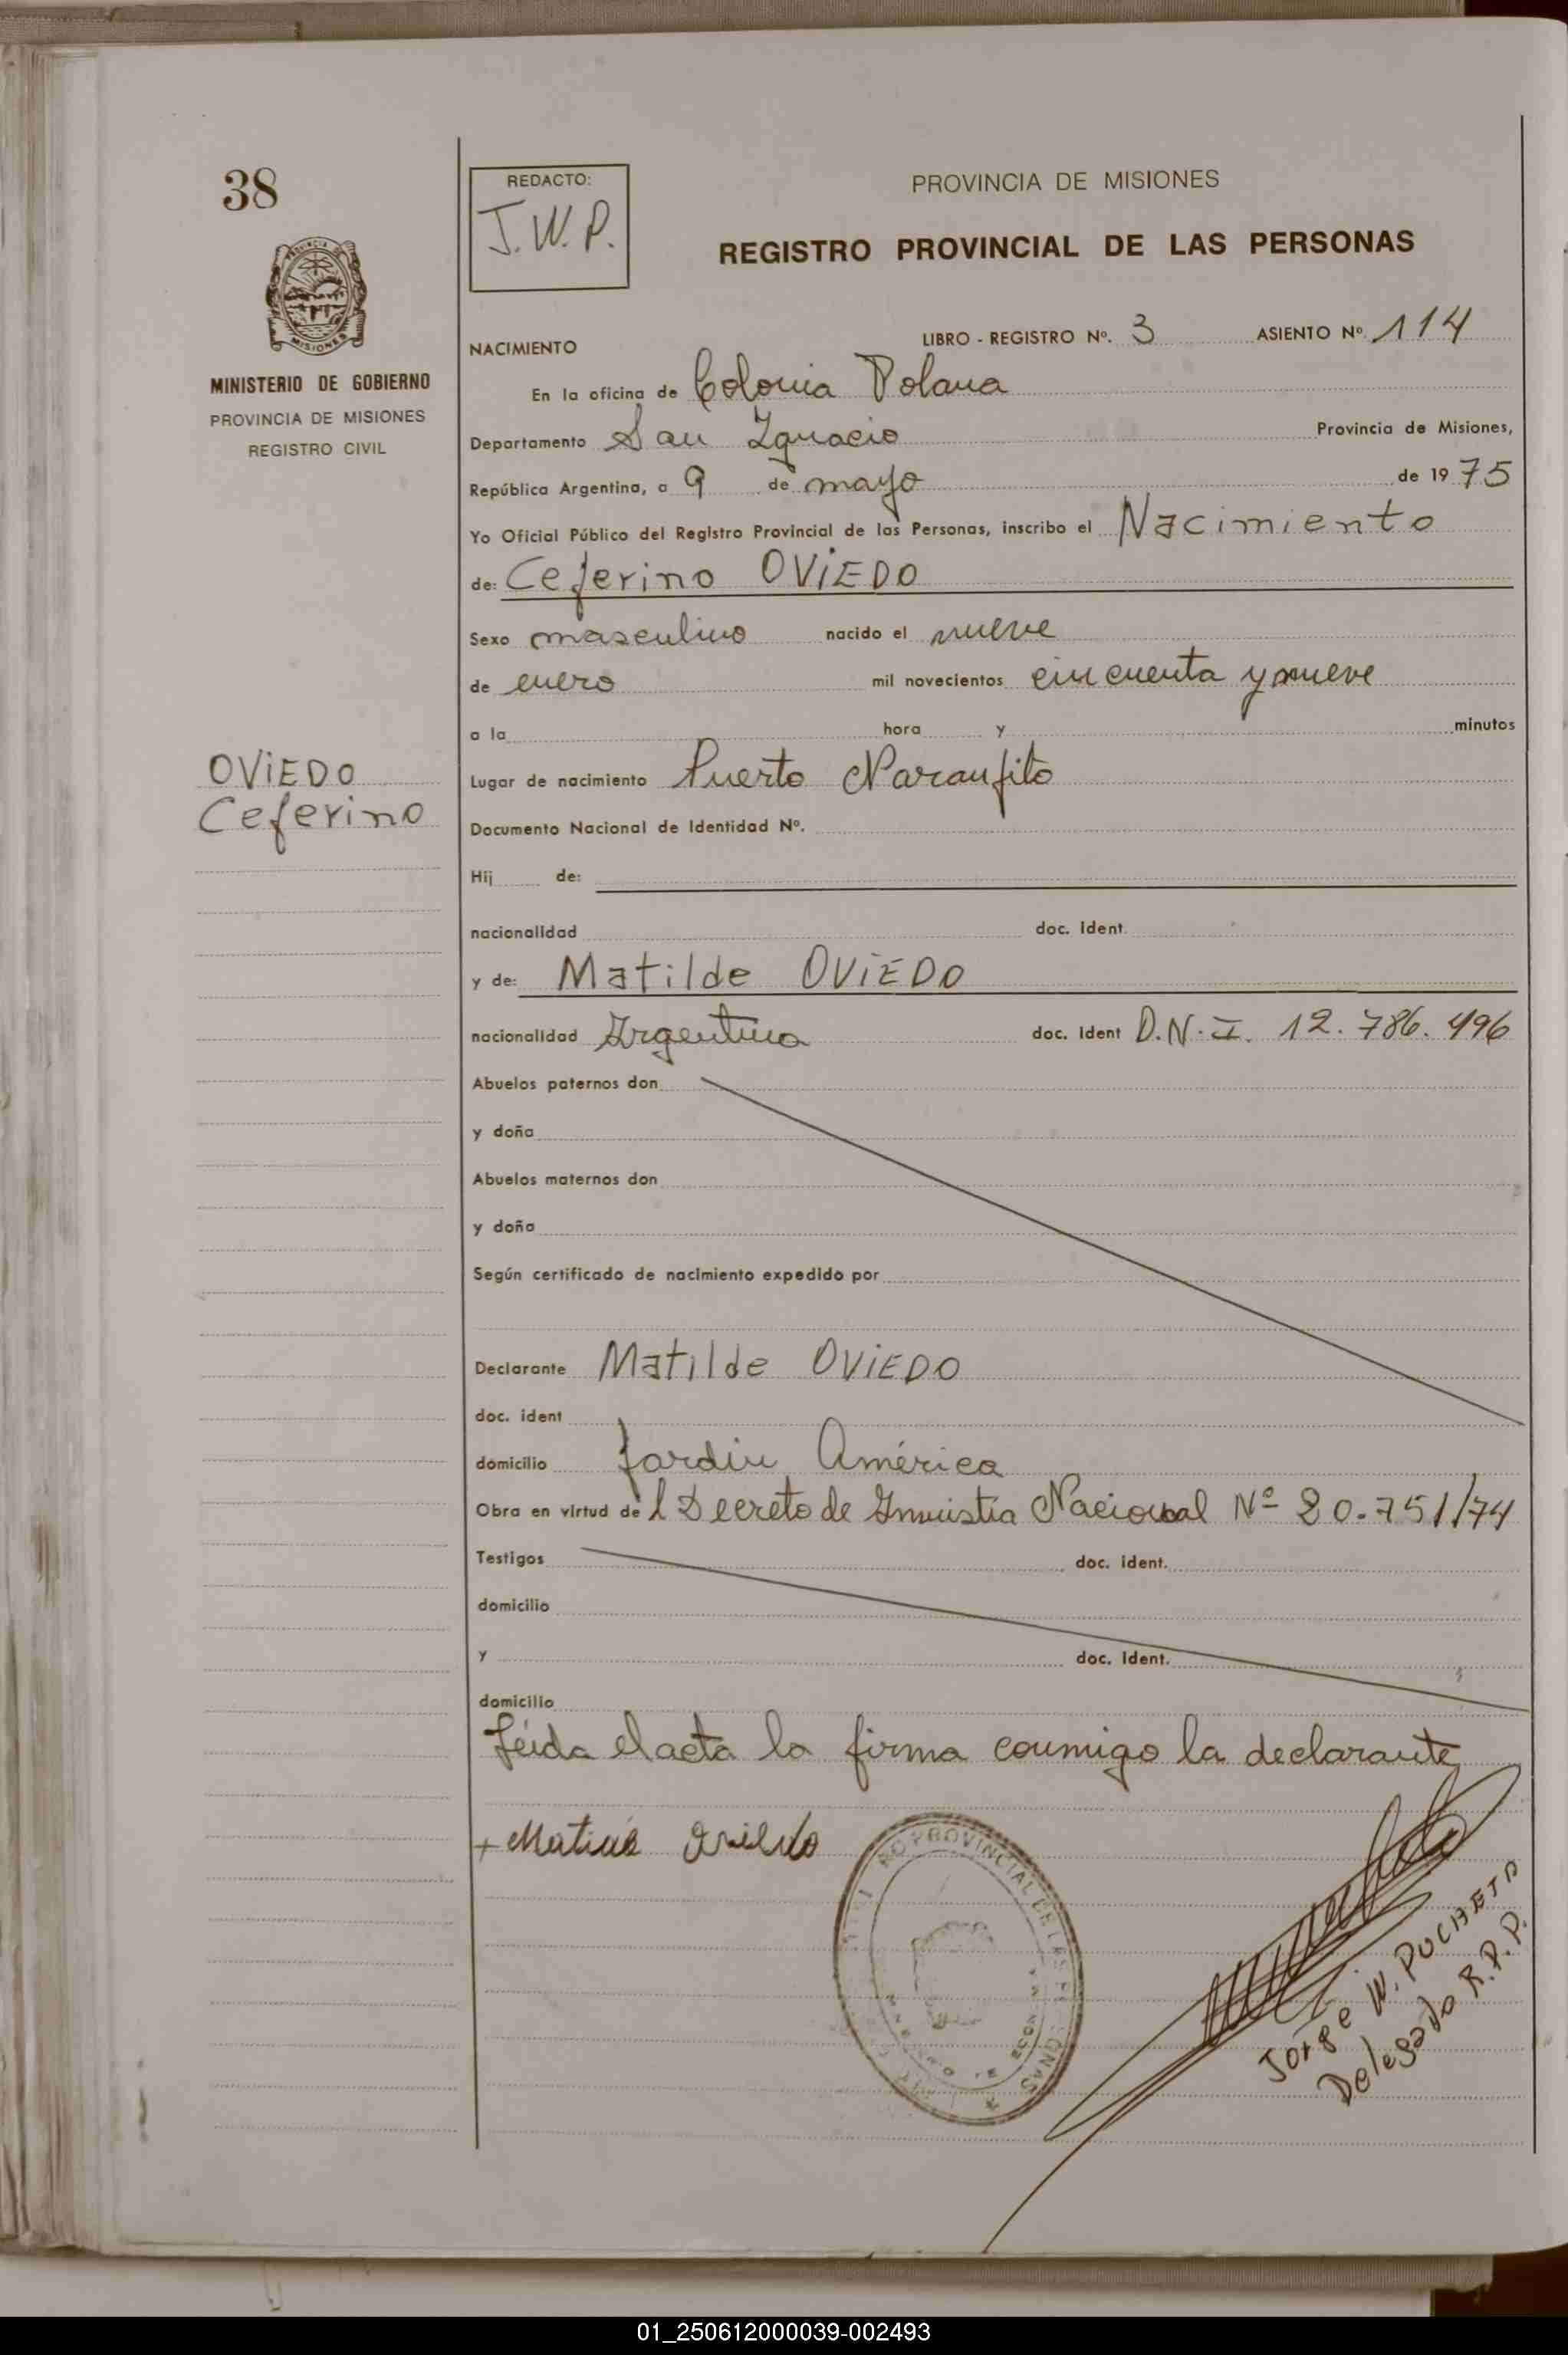 38
REDACTO:
J.W.P.
PROVINCIA DE MISIONES
REGISTRO PROVINCIAL DE LAS PERSONAS
MISIONES
MINISTERIO DE GOBIERNO
PROVINCIA DE MISIONES
REGISTRO CIVIL
LIBRO - REGISTRO Nº. 3 ASIENTO Nº. 114
NACIMIENTO
En la oficina de Colonia Polana
Departamento San Ignacio Provincia de Misiones,
República Argentina, a 9 de mayo de 19 75
Yo Oficial Público del Registro Provincial de las Personas, inscribo el Nacimiento
de: Ceferino OViEDO
Sexo masculino nacido el nueve
de enero mil novecientos cincuenta y nueve
a la hora y minutos
OViEDO
Ceferino
Lugar de nacimiento Puerto Naranjito
Documento Nacional de Identidad Nº.
Hij de:
nacionalidad doc. ident
y de: Matilde OViEDO
nacionalidad Argentina doc. ident D.N.I. 12.786.496
Abuelos paternos don
y doña
Abuelos maternos don
y doña
Según certificado de nacimiento expedido por
Declarante Matilde OViEDO
doc. ident
domicilio Jardin América
Obra en virtud de l Decreto de Amnistia Nacional Nº 20.751/74
Testigos doc. ident.
domicilio
y doc. ident.
domicilio
Leida el acta la firma conmigo la declarante
+ Matilde Oviedo
PROVINCIAL DE LAS
Jorge W. PUCHETA
Delegado R.P.P.
01_250612000039-002493